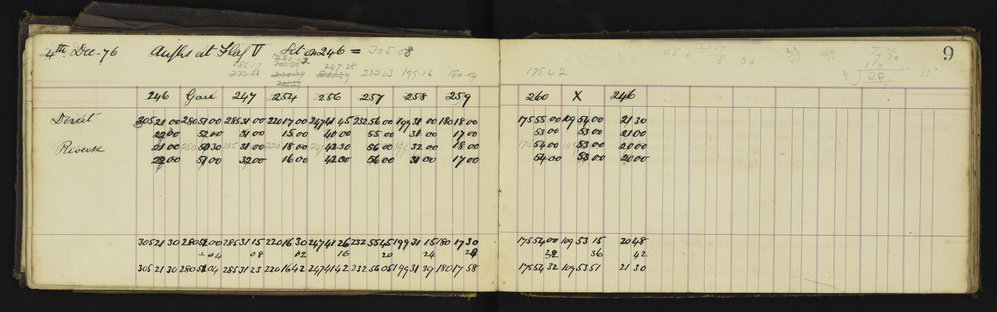 4th Dec. 76 Angles at Flag V. Set on 246 = 305.08 9
175 42
246 Gate 247 254 256 257 258 259 260 X 246
Direct 305 21 00 280 51 00 285 31 00 220 17 00 247 41 45 232 56 00 199 31 00 180 18 00 175 55 00 109 54 00 21 30
22 00 52 00 31 00 15 00 40 00 55 00 31 00 17 00 53 00 53 00 21 00
Reverse 21 00 280 50 30 285 31 00 220 18 00 247 42 30 56 00 199 32 00 18 00 175 54 00 109 53 00 20 00
22 00 51 00 32 00 16 00 42 00 56 00 31 00 17 00 54 00 53 00 20 00
305 21 30 280 51 00 285 31 15 220 16 30 247 41 26 232 55 45 199 31 15 180 17 30 175 54 00 109 53 15 20 48
04 08 12 16 20 24 28 32 36 42
305 21 30 280 51 04 285 31 23 220 16 42 247 41 42 232 56 05 199 31 39 180 17 58 175 54 32 109 53 51 21 30